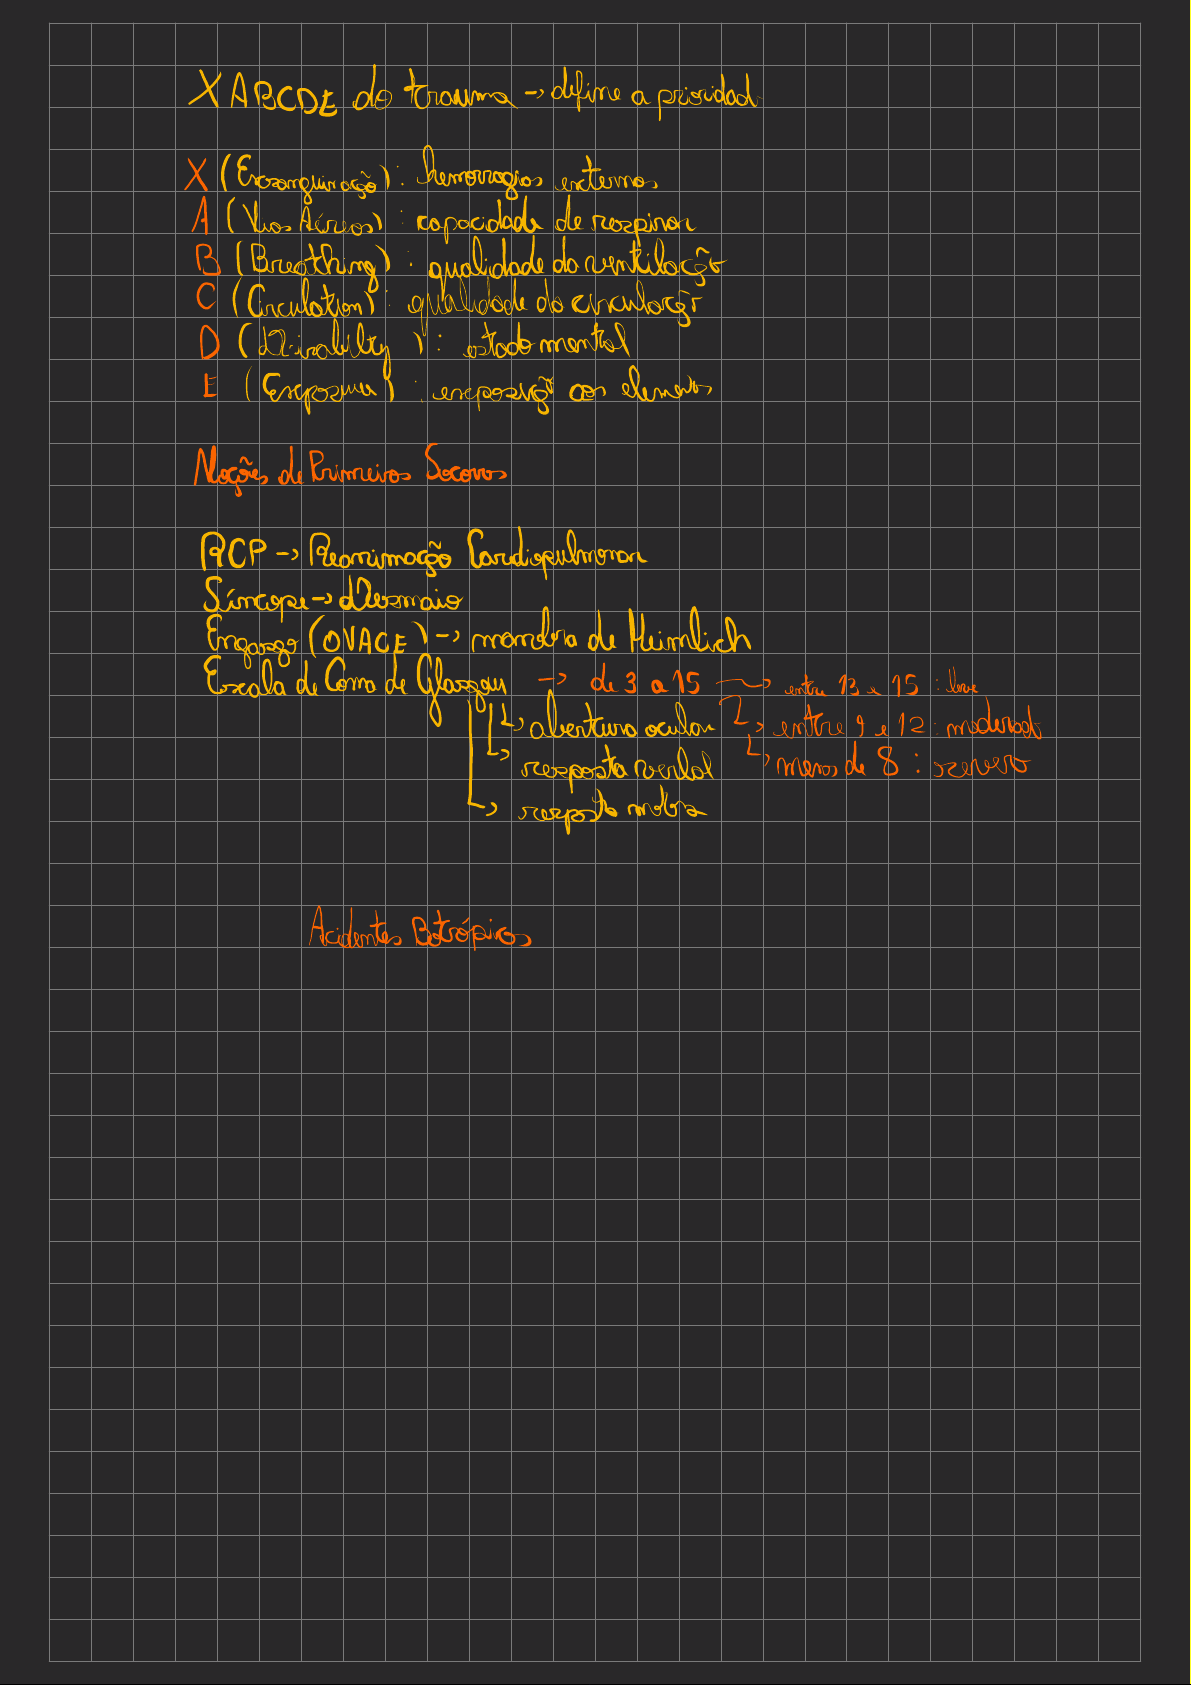 XABCDE do trauma -> define a prioridad
X (Exsanguinação) : hemorragias externas
A (Vias Aéreas) : capacidade de respirar
B (Breathing) : qualidade da ventilação
C (Circulation) : qualidade da circulação
D : estado mental
E : exposição aos elementos
Noções de Primeiros Socorros
RCP -> Reanimação Cardiopulmonar
Síncope -> Desmaio
Engasgo (OVACE) -> manobra de Heimlich
Escala de Coma de Glasgow -> de 3 a 15 -> entre 13 e 15 : leve
abertura ocular entre 9 e 12 : moderado
resposta verbal menos de 8 : severo
resposta motora
Acidentes Botrópicos